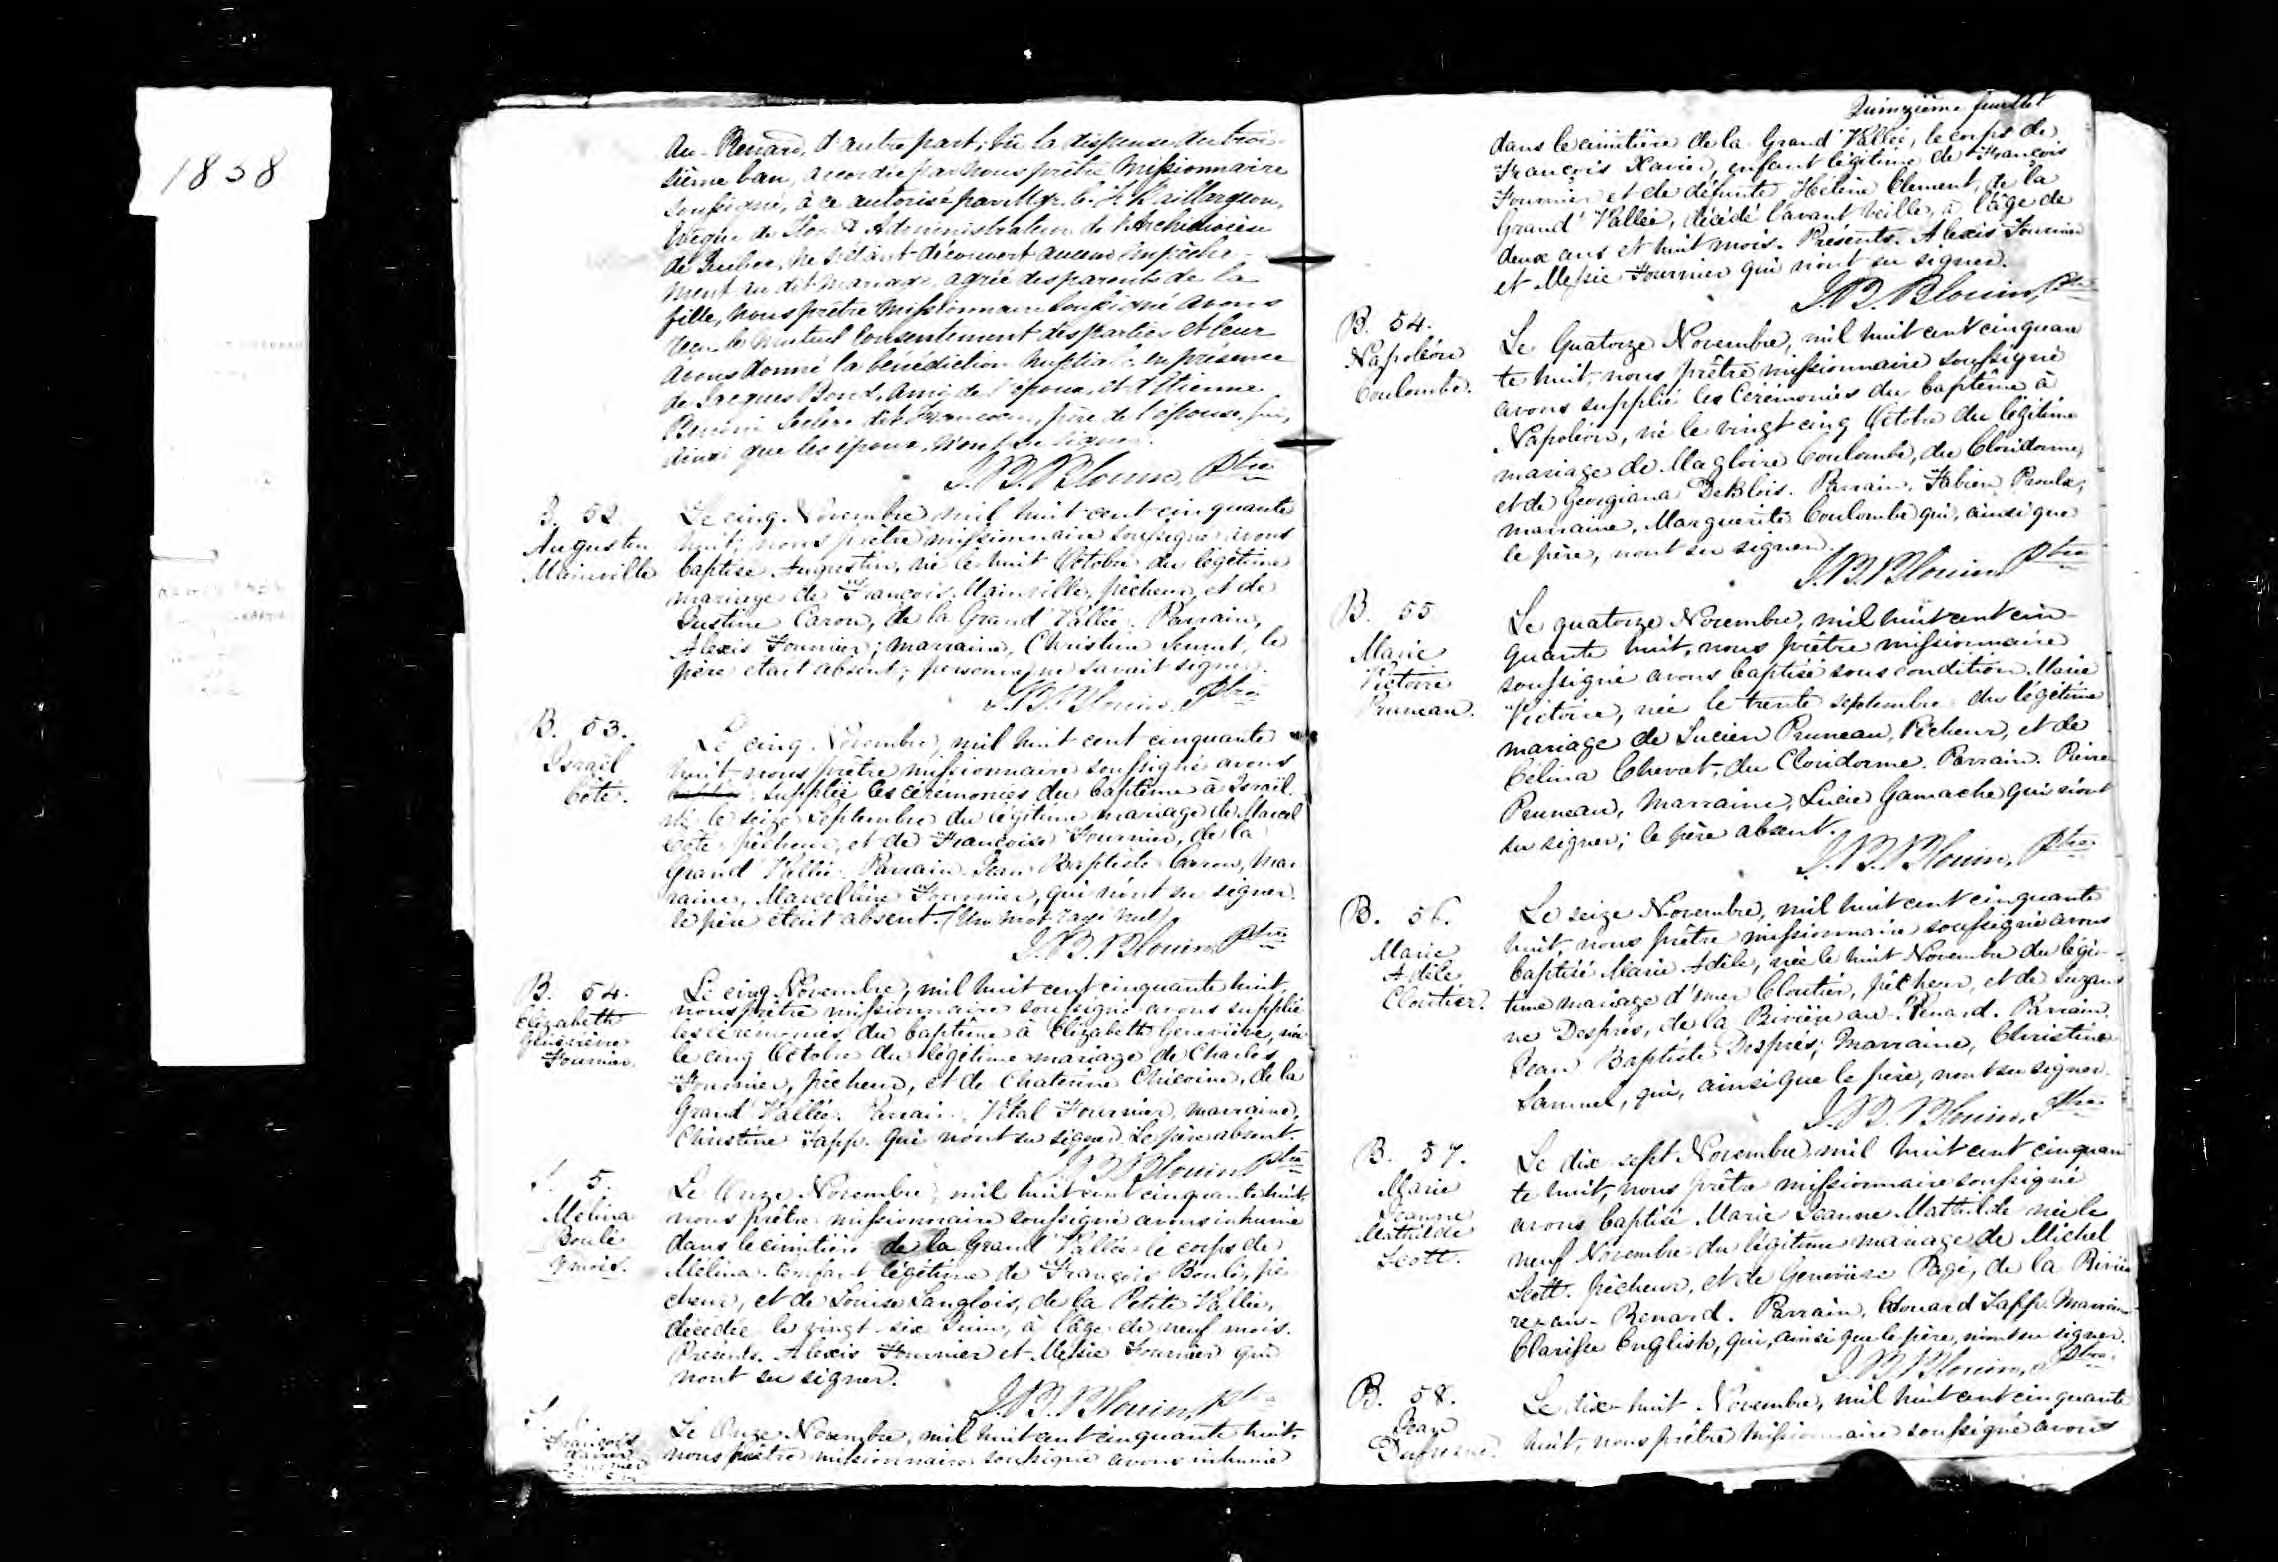 1858
au Renard, d'autre part; Vû la dispense du troi-
sième ban, accordée par nous prêtre missionnaire
soussigné, à ce autorisé par Mgr. C. F. Baillargeon,
Evêque de Administrateur de l'Archidiocèse
de Quebec, ne s'étant découvert aucun empêche-
ment au dit mariage, agréé des parents de la
fille, nous prêtre missionnaire soussigné avons
reçu le mutuel consentement des parties et leur
avons donné la bénédiction nuptiale en présence
de Jacques Bond, ami de l'époux, et d'Etienne
Leclerc dit Francoeur, père de l'épouse, qui,
ainsi que les époux, n'ont su signer.
J. B. Blouin, Ptre
B. 52.
Augustin
Mainville
Le cinq Novembre mil huit cent cinquante
huit, nous prêtre missionnaire soussigné avons
baptisé Augustin, né le huit Octobre du légitime
mariage de François Mainville, pêcheur, et de
Justine Caron, de la Grand' Vallée. Parrain,
Alexis Fournier; marraine, Christine, le
père était absent; personne ne savait signer.
J. B. Blouin, Ptre
B. 53.
Israël
Côté.
Le cinq Novembre, mil huit cent cinquante
huit, nous prêtre missionnaire soussigné avons
suppléé les cérémonies du baptême à Israël
né le seize septembre du légitime mariage de Marcel
Côté, pêcheur, et de Françoise Fournier, de la
Grand' Vallée. Parrain Jean Baptiste Caron, mar
raine, Marcelline Fournier, qui n'ont su signer.
le père était absent. (Un mot rayé nul)
J. B. Blouin Ptre
B. 54.
Elizabeth
Géneviève
Fournier.
Le cinq Novembre, mil huit cent cinquante huit,
nous prêtre missionnaire soussigné avons suppléé
les cérémonies du baptême à Elizabeth Geneviève, née
le cinq Octobre du légitime mariage de Charles
Fournier, pêcheur, et de Chaterine Chicoine, de la
Grand' Vallée. Parrain, Vital Fournier, marraine,
Christine Sapp. qui n'ont su signer. Le père absent.
J. B. Blouin Ptre
S. 5.
Melina
Boulé
9 mois.
Le Onze Novembre, mil huit cent cinquante huit,
nous prêtre missionnaire soussigné avons inhumé
dans le cimitière de la Grand' Vallée le corps de
Mélina enfant légitime de François Boulé, pê
cheur, et de Louise Langlois, de la Petite Vallée,
décédée le vingt-six Juin, à l'âge de neuf mois.
Présents. Alexis Fournier et Messie Fournier qui
n'ont su signer.
J. B. Blouin, Ptre
S.
François
Xavier
Fournier
Le Onze Novembre, mil huit cent cinquante huit,
nous prêtre missionnaire soussigné avons inhumé
Quinzième feuillet
dans le cimitière de la Grand' Vallée, le corps de
François Xavier, enfant légitime de François
Fournier et de défunte Hélène Clement, de la
Grand' Vallée, décédé l'avant veille, à l'âge de
deux ans et huit mois. Présents. Alexis Fournier
et Messie Fournier qui n'ont su signer.
J. B. Blouin, Ptre
B. 54.
Napoléon
Coulombe.
Le Quatorze Novembre, mil huit cent cinquan
te huit, nous prêtre missionnaire soussigné
avons suppléé les Cérémonies du baptême à
Napoléon, né le vingt cinq Octobre du légitime
mariage de Magloire Coulombe, du Cloridorme,
et de Georgiana DeBlois. Parrain. Fabien Proulx,
marraine, Marguerite Coulombe qui, ainsi que
le père, n'ont su signer.
J. B. Blouin Ptre
B. 55
Marie
Victoire
Pruneau.
Le quatorze Novembre, mil huit cent cin-
quante huit, nous prêtre missionnaire
soussigné avons baptisé sous condition Marie
Victoire, née le trente septembre du légitime
mariage de Lucien Pruneau, Pêcheur, et de
Célina Chevat, du Cloridorme. Parrain. Pierre
Pruneau, Marraine, Lucie Gamache qui n'ont
su signer; le père absent.
J. B. Blouin, Ptre
B. 56.
Marie
Adèle
Cloutier.
Le seize Novembre, mil huit cent cinquante
huit, nous prêtre missionnaire soussigné avons
baptisé Marie Adèle, née le huit Novembre du légi-
time mariage d'mer Cloutier, pêcheur, et de Suzan
ne Després, de la Rivière au-Renard. Parrain,
Jean Baptiste Després; Marraine, Christine
Samuel, qui, ainsi que le père, n'ont su signer.
J. B. Blouin, Ptre
B. 57.
Marie
Jeanne
Mathilde
Scott.
Le dix-sept Novembre mil huit cent cinquan
te huit, nous prêtre missionnaire soussigné
avons baptisé Marie Jeanne Mathilde née le
neuf Novembre du légitime mariage de Michel
Scott. pêcheur, et de Geneviève Pagé, de la Riviè
re-au-Renard. Parrain, Edouard Sapp. Marraine
Clarisse English, qui, ainsi que le père, n'ont su signer.
J. B. Blouin, Ptre
B. 58.
Jean
Dufresne.
Le dix-huit Novembre, mil huit cent cinquante
huit, nous prêtre missionnaire soussigné avons